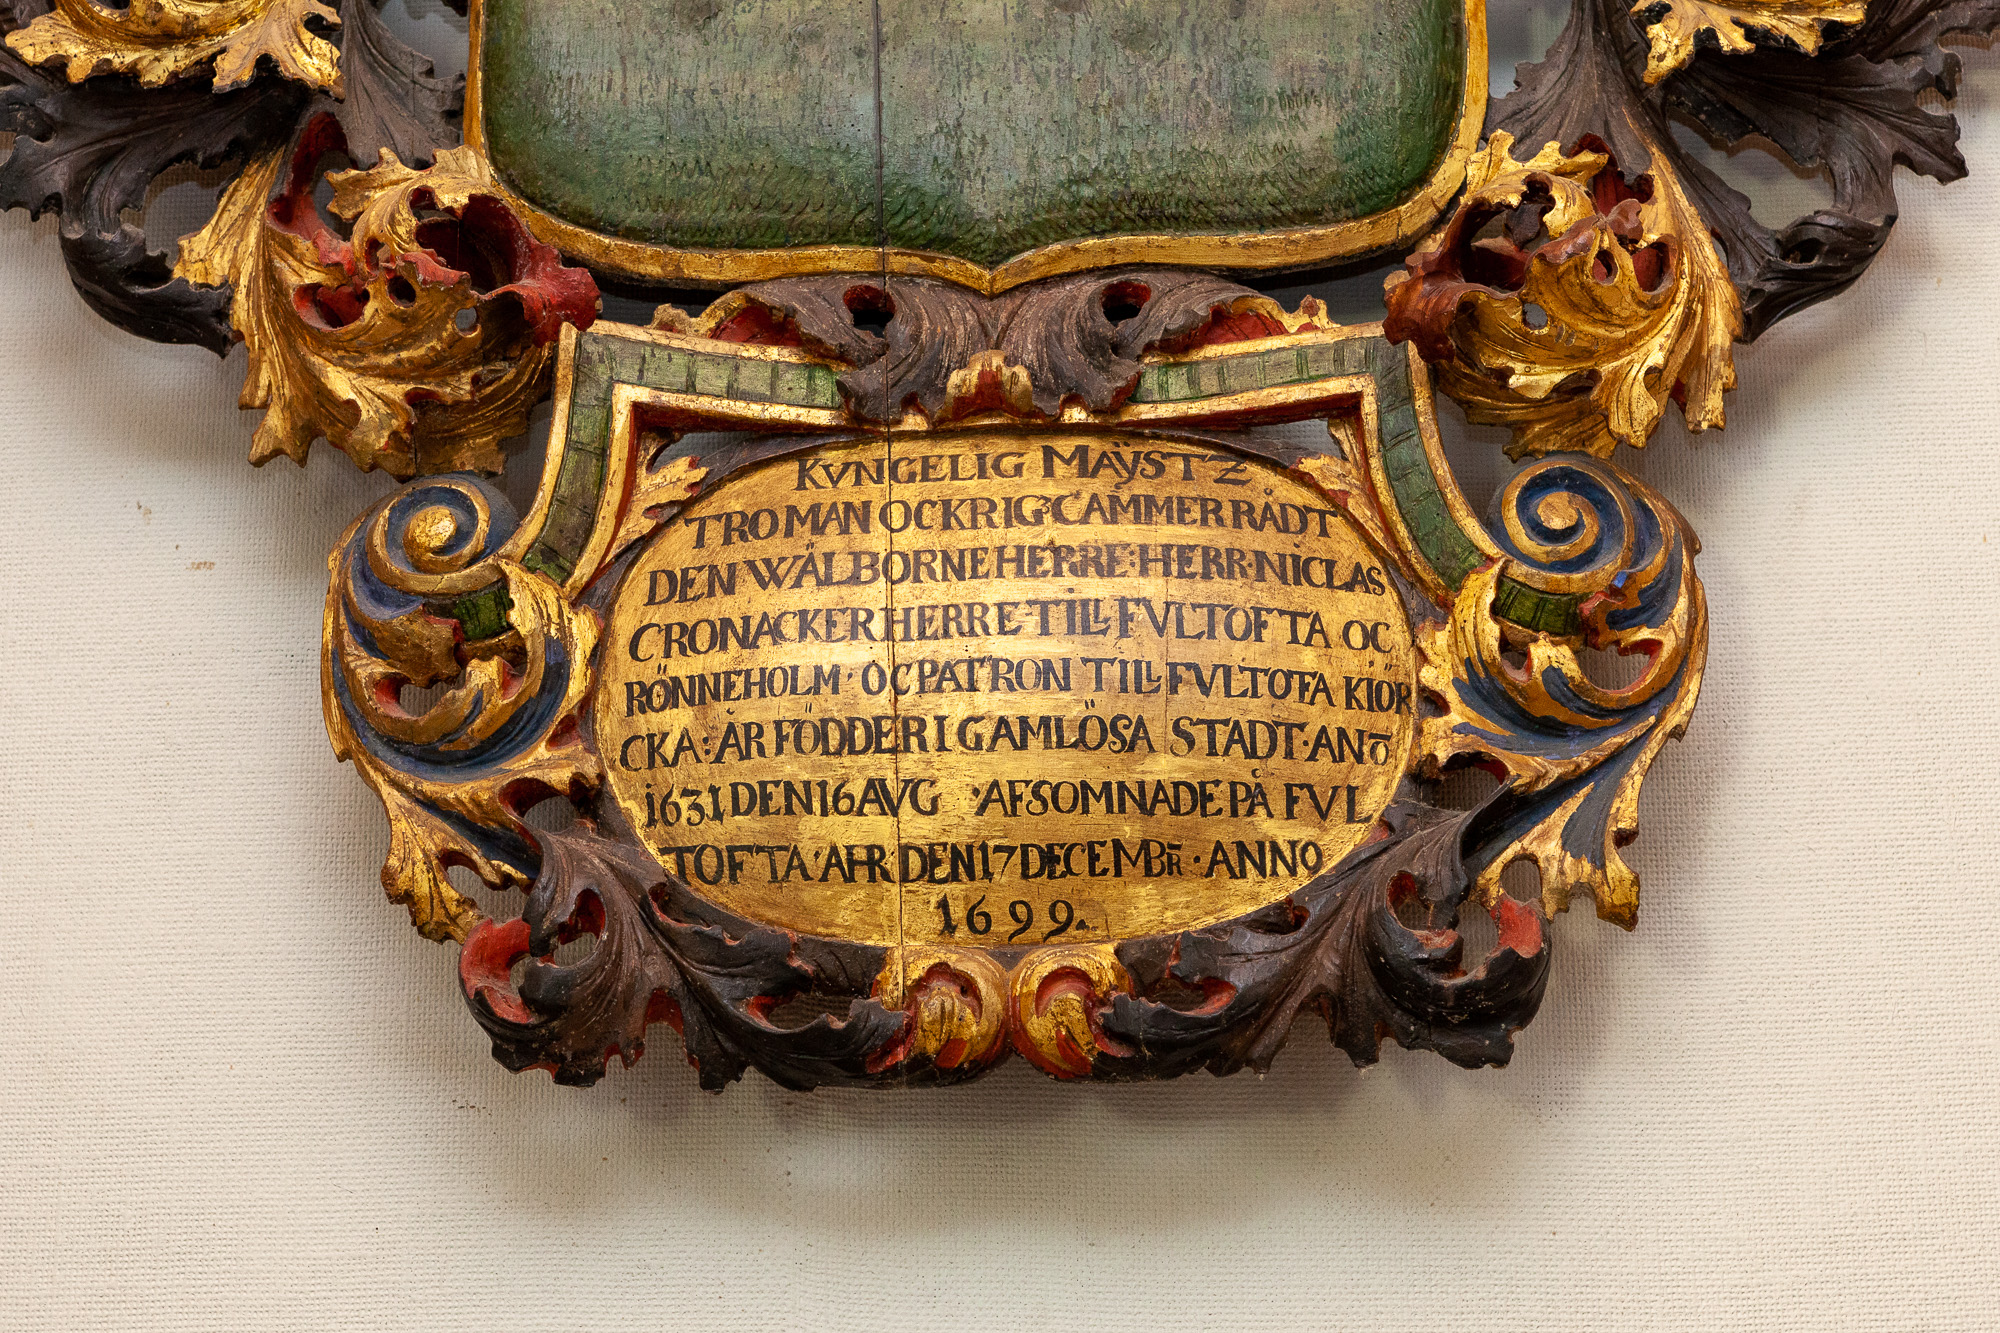 KVNGELIG MAŸSTZ
TROMAN OCKRIGZCAMMERRÅDT
DEN WÄLBORNE HERRE·HERR·NICLAS
CRONACKER HERRE·TILL FVLTOFTA OC
RÖNNEHOLM·OC PATRON TILL FVLTOFA KIÖR
CKA:ÄR FÖDDER I GAMLÖSA STADT·ANŌ
1631 DEN 16 AVG ·AFSOMNADE PÅ FVL
TOFTA·AHR DEN 17 DECEMBR̄·ANNO
1699.